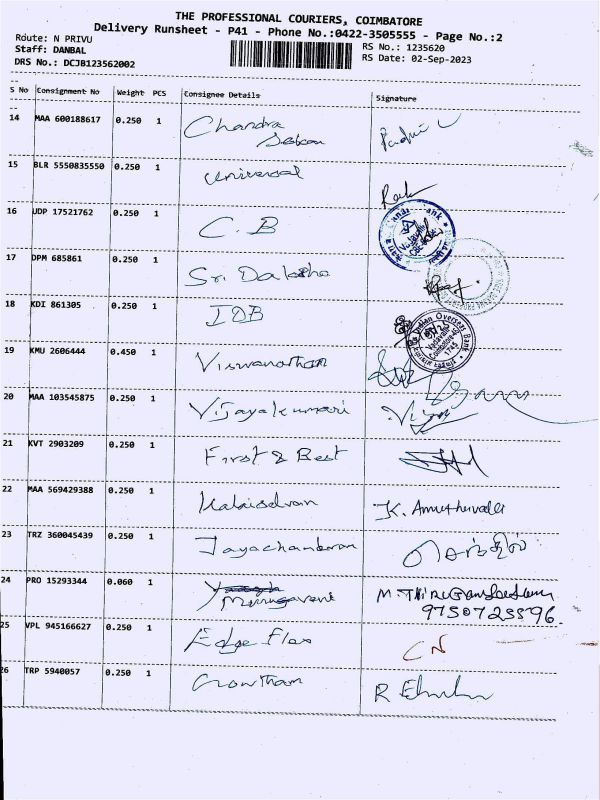 THE PROFESSIONAL COURIERS, COIMBATORE
Delivery Runsheet - P41 - Phone No.:0422-3505555 - Page No.:2
Route: N PRIVU
Staff: DANBAL
RS No.: 1235620
DRS No.: DCJB123562002
RS Date: 02-Sep-2023
S No Consignment No Weight PCS Consignee Details Signature
14 MAA 600188617 0.250 1 Chandra
Sekan
15 BLR 5550835550 0.250 1 Universal
16 UDP 17521762 0.250 1 C. B
17 DPM 685861 0.250 1 Sri Daksha
18 KDI 861305 0.250 1 IOB
Indian Overseas Bank
19 KMU 2606444 0.450 1 Viswanathan
20 MAA 103545875 0.250 1 Vijayakumari
21 KVT 2903209 0.250 1 First & Best
22 MAA 569429388 0.250 1 Kalaiselvan K. Amuthavalli
23 TRZ 360045439 0.250 1 Jayachandran செந்தில்
24 PRO 15293344 0.060 1 Murugaveni
9750725596.
25 VPL 945166627 0.250 1 Edge Flex CN
26 TRP 5940057 0.250 1 Gowtham R